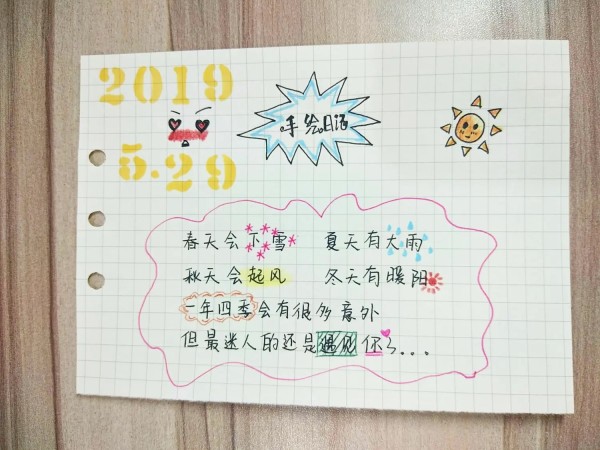 2019
手绘日记
5.29
春天会下雪 夏天有大雨
秋天会起风 冬天有暖阳
一年四季会有很多意外
但最迷人的还是遇见你了...